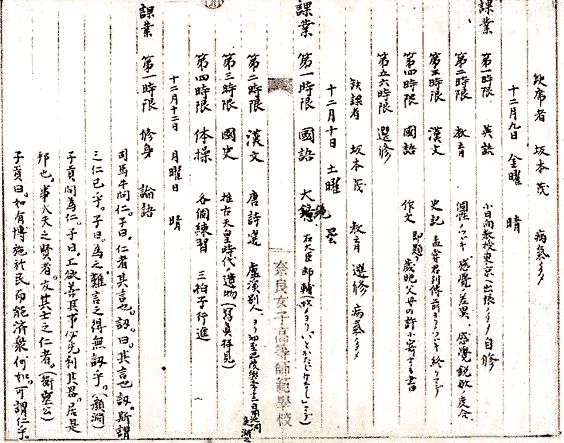 欠席者 坂本茂 病氣ノタメ
十二月九日 金曜 晴
課業 第一時限 英語 小日向教授東京ニ出張ノタメ自修
第二時限 教育 個性ノツヾキ 感覺ノ差異、感覺鋭敏ノ度合
第三時限 漢文 史記 孟嘗君列傳
第四時限 國語 作文 即題 歳晩父母の許に寄する書
第五六時限 選修
欠課者 坂本茂 教育 選修 病氣ノタメ
十二月十日 土曜 曇
課業 第一時限 國語 大鏡
第二時限 漢文 唐詩選
第三時限 國史 推古天皇時代ノ遺物(寫眞拝見)
第四時限 体操 各個練習 三拍子行進
十二月十二日 月曜日 晴
課業 第一時限 修身 論語
司馬牛問仁。子曰。仁者其言也。訒。曰。其言也訒。斯謂
之仁已乎。子曰。為之難。言之得無訒乎。(顔淵)
子貢問為仁。子曰。工欲善其事必先利其器。居是
邦也。事大夫之賢者。友其士之仁者。(衛靈公)
子貢曰。如有博施於民而能済衆何如。可謂仁乎。
奈良女子高等師範學校